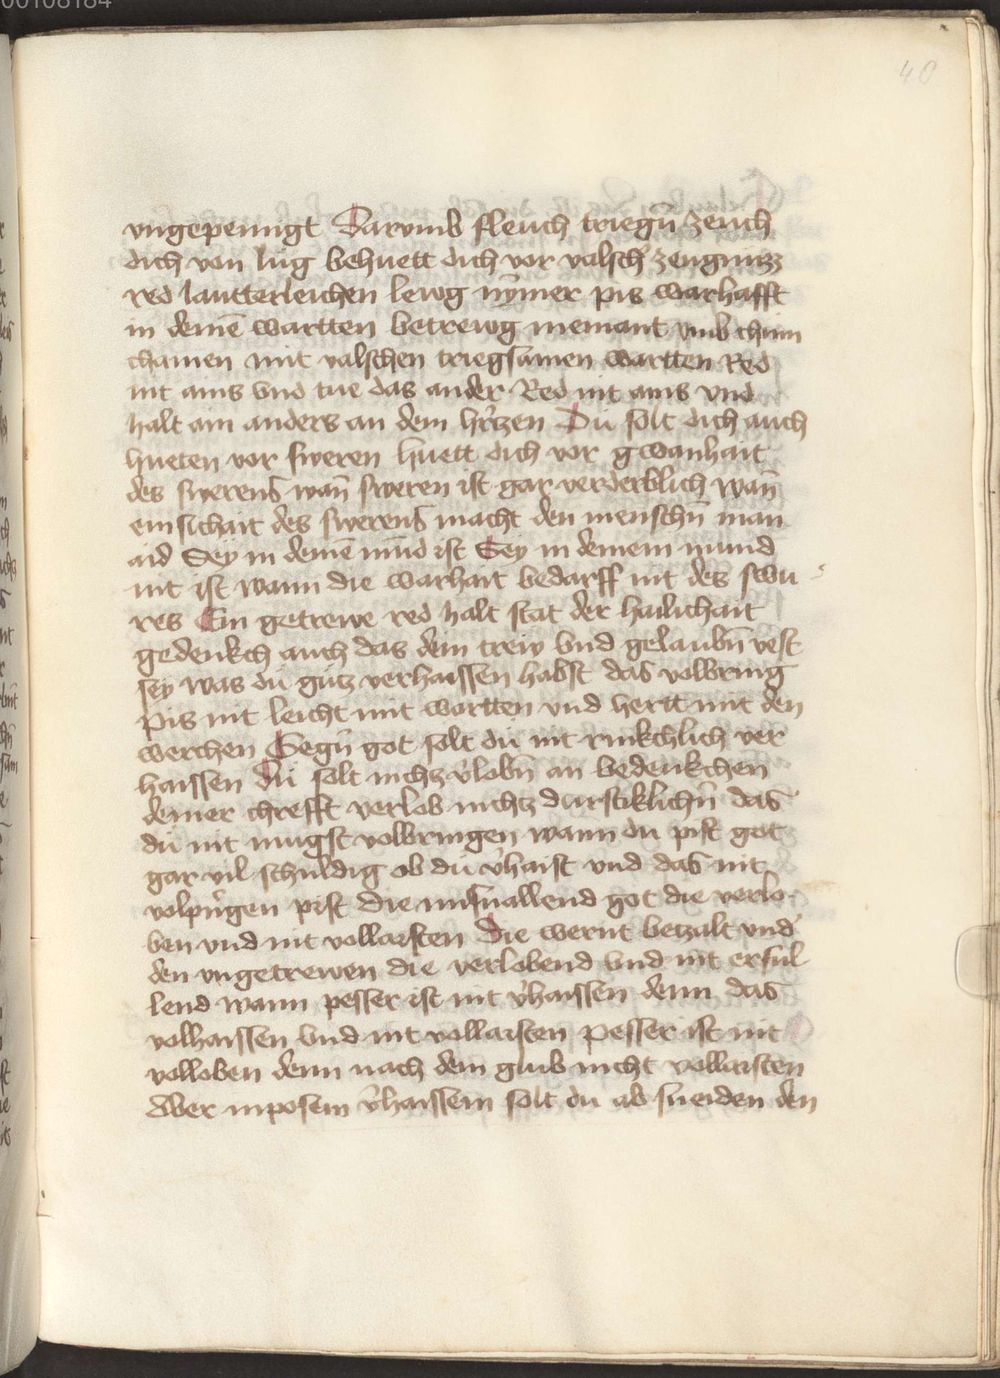 00108184
40
vngepeinigt Darvmb fleuch triegn̄ zeuch
dich von lug behuett dich vor valsch zeugnuzz
red lautterleichen lewg nymer pis warhafft
in deinē wartten betrewg niemant vmb chain
chainen mit valschen triegsamen wartten Red
nit ains vnd tue das ander Red nit ains vnd
halt ain anders an dem hrczen Du solt dich auch
hueten vor sweren huett dich vor gwanhait
des swerens wan̄ sweren ist gar verderblich wan̄
emsichait des swerens macht den menschn̄ main
aid Sey in deinē mūd ist Sey in deinem mund
nit ist wann die warhait bedarff nit des swu
res Ein getrewe red halt stat der hailichait
gedenkch auch das dein trew vnd gelaubn̄ vest
sey was du gutz verhaissen habst das volbring
pis nit leicht mit wortten vnd hertt mit den
werchen Gegn̄ got solt du nit rinkchlich ver
haissen du solt nichz v̄lobn̄ an bedenkchen
deiner chrefft verlob nichtz durstiklichn̄ das
du nit mugst volbringen wann du pist got
gar vil schuldig ob du v̄haist vnd das nit
volpn̄gen pist Die missuallend got die verlo
ben vnd nit vollaisten Die wernt betzalt vnd
den vngetrewen die verlobend vnd nit erful
lend wann pesser ist nit v̄haissen denn das
volhaissen vnd nit vollaisten pesser ist nit
volloben denn nach dem glub nicht vollaisten
Aber inposem v̄haissem solt du ab sneiden den